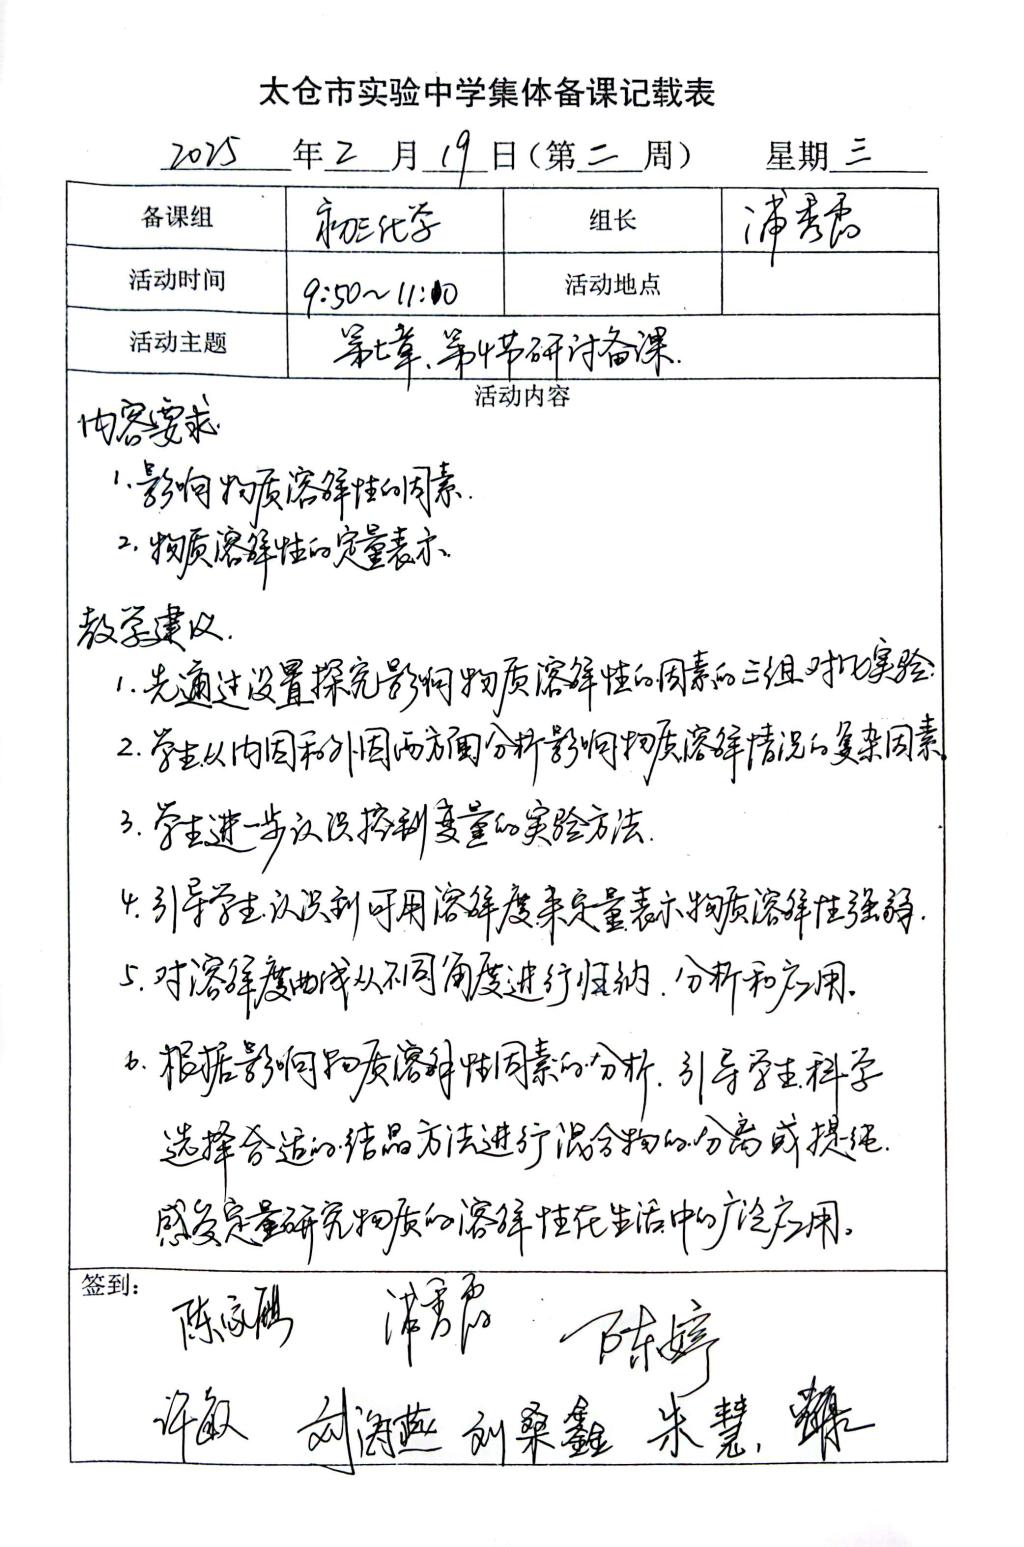 太仓市实验中学集体备课记载表
2025 年 2 月 19 日(第 二 周) 星期 三
备课组 初三化学 组长 浦秀霞
活动时间 9:50~11:10 活动地点
活动主题 第七章、第4节研讨备课.
活动内容
内容要求
1. 影响物质溶解性的因素.
2. 物质溶解性的定量表示.
教学建议.
1. 先通过设置探究影响物质溶解性的因素的三组对比实验.
2. 学生从内因和外因两方面分析影响物质溶解情况的复杂因素
3. 学生进一步认识控制变量的实验方法.
4. 引导学生认识到可用溶解度来定量表示物质溶解性强弱.
5. 对溶解度曲线从不同角度进行归纳、分析和应用。
6. 根据影响物质溶解性因素的分析, 引导学生科学
选择合适的结晶方法进行混合物的分离或提纯.
感受定量研究物质的溶解性在生活中的广泛应用。
签到:
陈家 浦秀霞 陈婷
许敏 刘海燕 刘桑鑫 朱慧